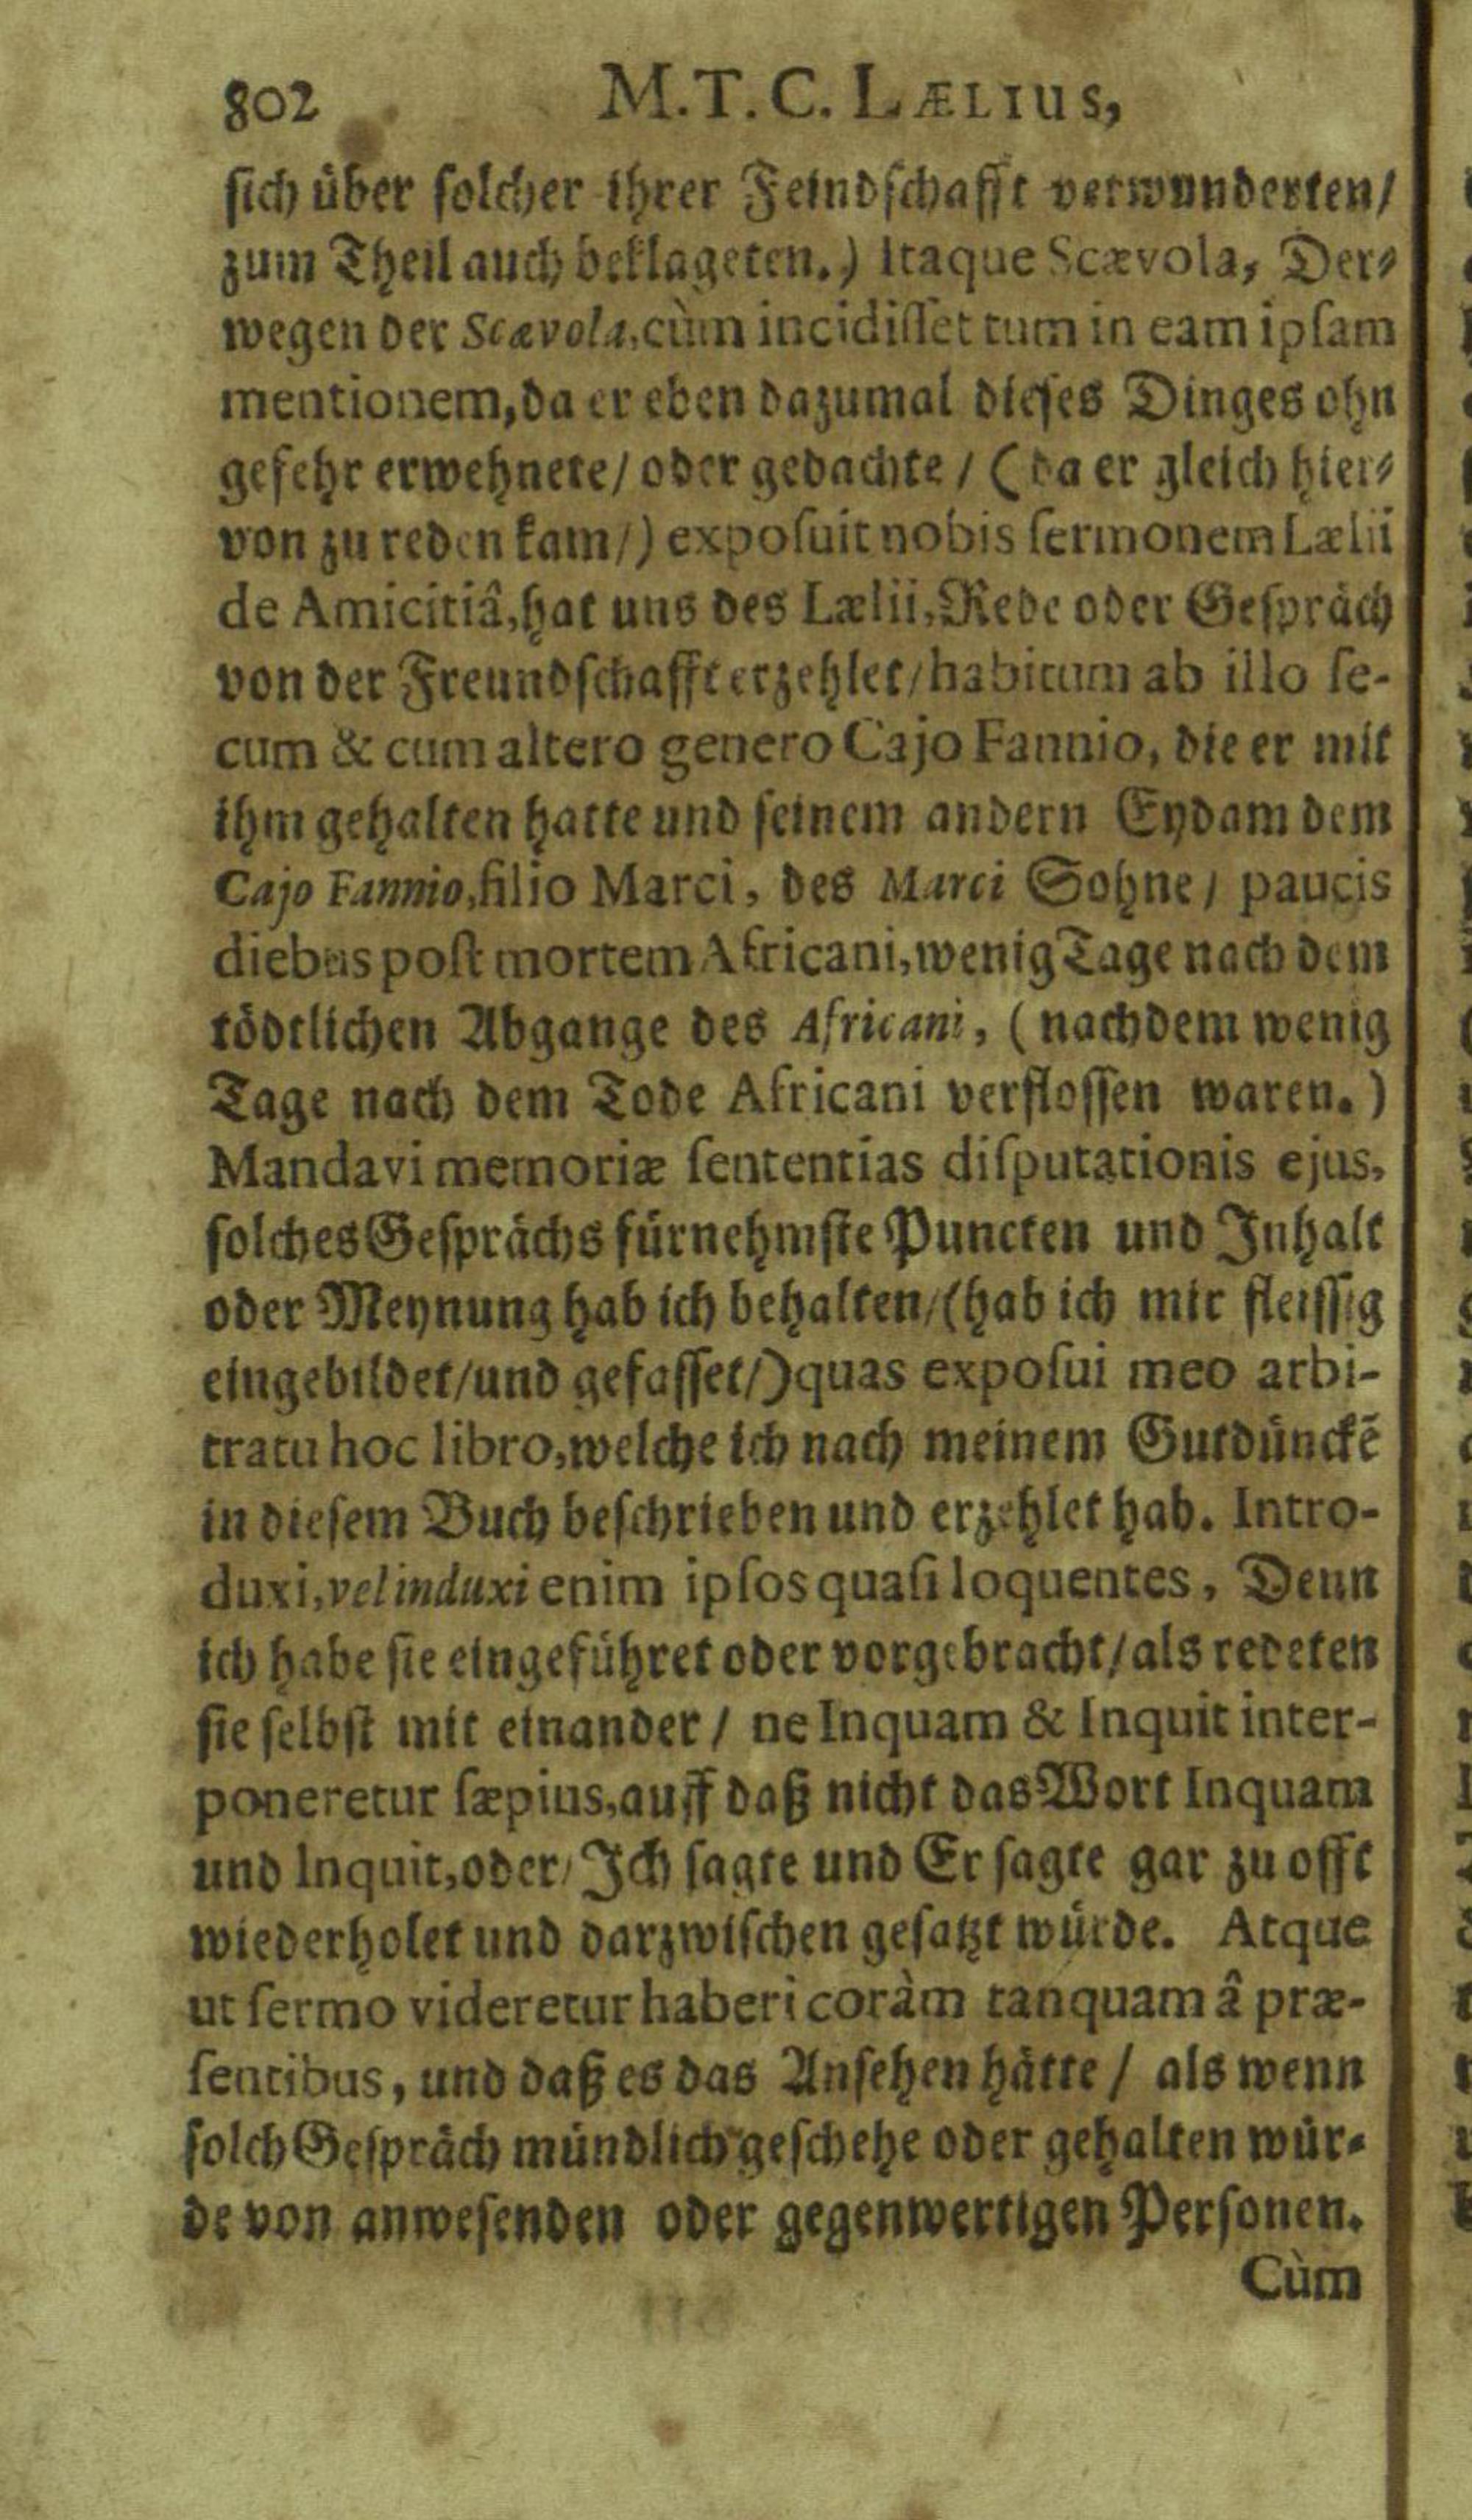 802 M.T.C. LÆLIUS,
sich über solcher ihrer Feindschafft verwunderten/
zum Theil auch beklageten.) Itaque Scævola, Der-
wegen der Scævola, cùm incidisset tum in eam ipsam
mentionem, da er eben dazumal dieses Dinges ohn
gefehr erwehnete/ oder gedachte/ (da er gleich hier-
von zu reden kam/) exposuit nobis sermonem Lælii
de Amicitiâ, hat uns des Lælii, Rede oder Gespräch
von der Freundschafft erzehlet/ habitum ab illo se-
cum & cum altero genero Cajo Fannio, die er mit
ihm gehalten hatte und seinem andern Eydam dem
Cajo Fannio, filio Marci, des Marci Sohne/ paucis
diebus post mortem Africani, wenig Tage nach dem
tödtlichen Abgange des Africani, (nachdem wenig
Tage nach dem Tode Africani verflossen waren.)
Mandavi memoriæ sententias disputationis ejus,
solches Gesprächs fürnehmste Puncten und Inhalt
oder Meynung hab ich behalten/ (hab ich mir fleissig
eingebildet/ und gefasset/) quas exposui meo arbi-
tratu hoc libro, welche ich nach meinem Gutdünckē
in diesem Buch beschrieben und erzehlet hab. Intro-
duxi, vel induxi enim ipsos quasi loquentes, Denn
ich habe sie eingeführet oder vorgebracht/ als redeten
sie selbst mit einander/ ne Inquam & Inquit inter-
poneretur sæpius, auff daß nicht das Wort Inquam
und Inquit, oder/ Ich sagte und Er sagte gar zu offt
wiederholet und darzwischen gesatzt würde. Atque
ut sermo videretur haberi coràm tanquam â præ-
sentibus, und daß es das Ansehen hätte/ als wenn
solch Gespräch mündlich geschehe oder gehalten wür-
de von anwesenden oder gegenwertigen Personen.
Cùm